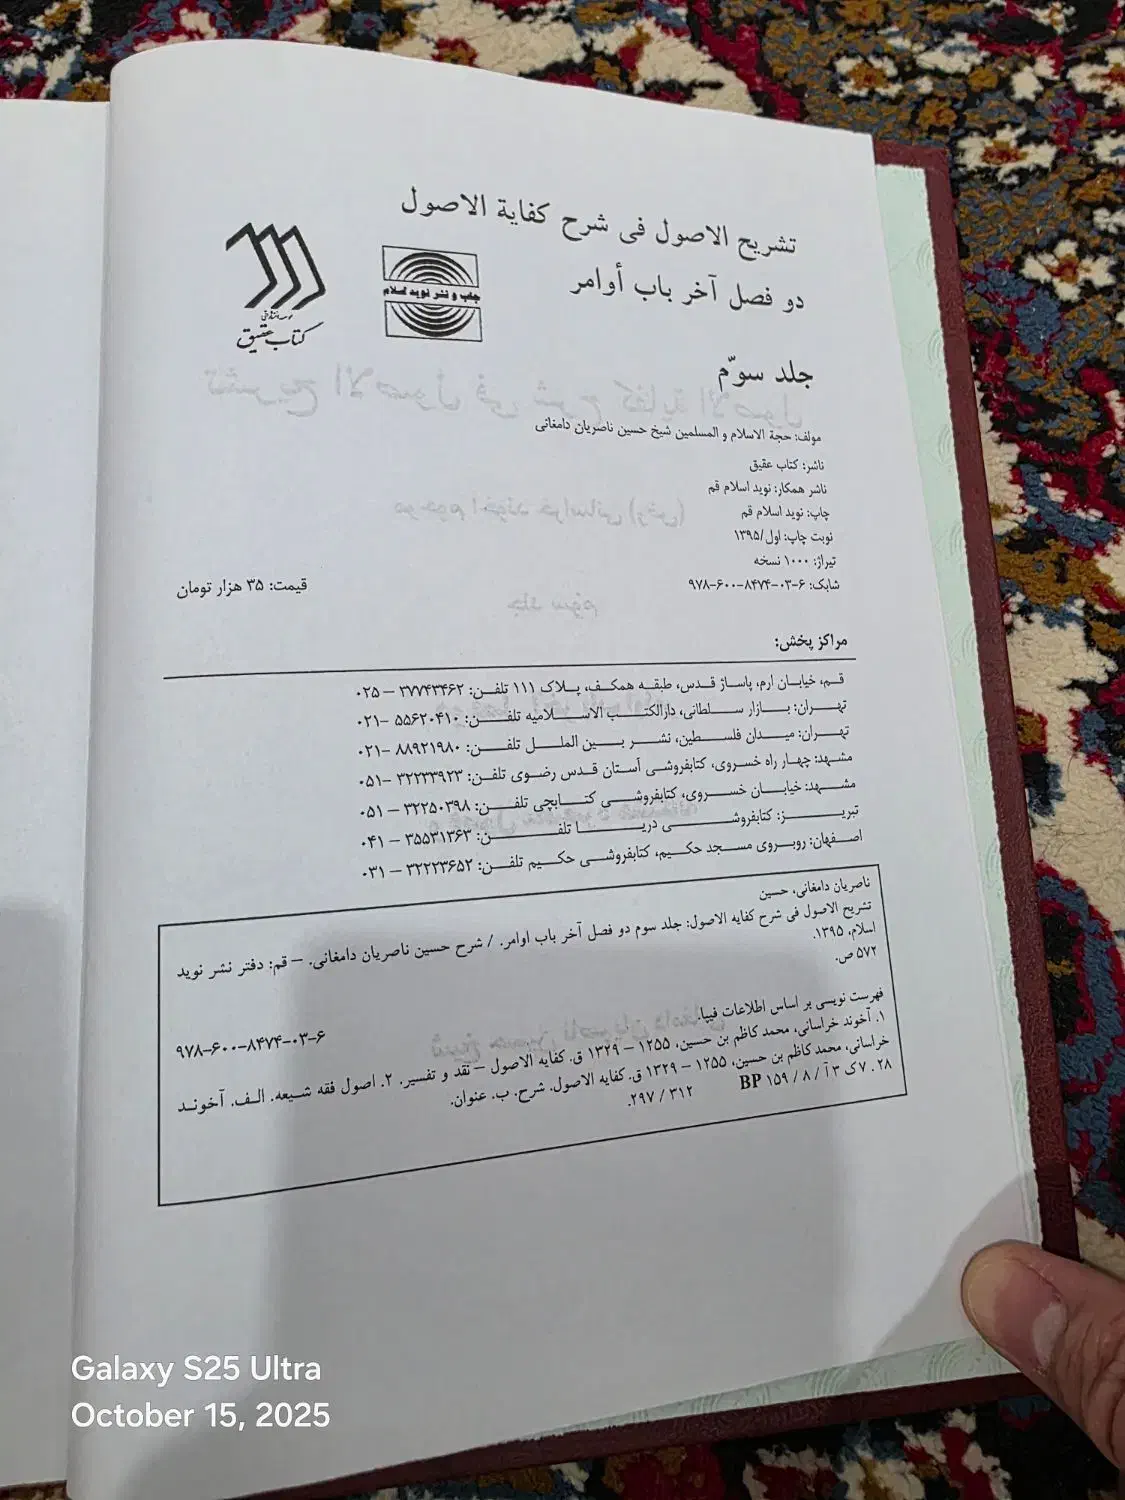 تشریح الاصول فی شرح کفایة الاصول
دو فصل آخر باب أوامر
چاپ و نشر نوید اسلام
کتاب عقیق
جلد سوّم
مولف: حجة الاسلام و المسلمین شیخ حسین ناصریان دامغانی
ناشر: کتاب عقیق
ناشر همکار: نوید اسلام قم
چاپ: نوید اسلام قم
نوبت چاپ: اول/۱۳۹۵
تیراژ: ۱۰۰۰ نسخه
شابک: ۶-۰۳-۸۴۷۴-۶۰۰-۹۷۸
قیمت: ۳۵ هزار تومان
مراکز پخش:
قم، خیابان ارم، پاساژ قدس، طبقه همکف، پلاک ۱۱۱ تلفن: ۳۷۷۴۳۴۶۲ – ۰۲۵
تهران: بازار سلطانی، دارالکتب الاسلامیه تلفن: ۵۵۶۲۰۴۱۰ –۰۲۱
تهران: میدان فلسطین، نشر بین الملل تلفن: ۸۸۹۲۱۹۸۰ –۰۲۱
مشهد: چهار راه خسروی، کتابفروشی آستان قدس رضوی تلفن: ۳۲۲۳۳۹۲۳ –۰۵۱
مشهد: خیابان خسروی، کتابفروشی کتابچی تلفن: ۳۲۲۵۰۳۹۸ – ۰۵۱
تبریز: کتابفروشی دریا تلفن: ۳۵۵۳۱۳۶۳ – ۰۴۱
اصفهان: روبروی مسجد حکیم، کتابفروشی حکیم تلفن: ۳۲۲۲۳۶۵۲ – ۰۳۱
ناصریان دامغانی، حسین
تشریح الاصول فی شرح کفایه الاصول: جلد سوم دو فصل آخر باب اوامر. / شرح حسین ناصریان دامغانی. – قم: دفتر نشر نوید
اسلام، ۱۳۹۵.
۵۷۲ ص.
۶-۰۳-۸۴۷۴-۶۰۰-۹۷۸
فهرست نویسی بر اساس اطلاعات فیپا.
۱. آخوند خراسانی، محمد کاظم بن حسین، ۱۲۵۵ – ۱۳۲۹ ق. کفایه الاصول – نقد و تفسیر. ۲. اصول فقه شیعه. الف. آخوند
خراسانی، محمد کاظم بن حسین، ۱۲۵۵ – ۱۳۲۹ ق. کفایه الاصول. شرح. ب. عنوان.
۲۸ .۷ک ۳ آ / ۸ / ۱۵۹ BP
۳۱۲ / ۲۹۷.
Galaxy S25 Ultra
October 15, 2025